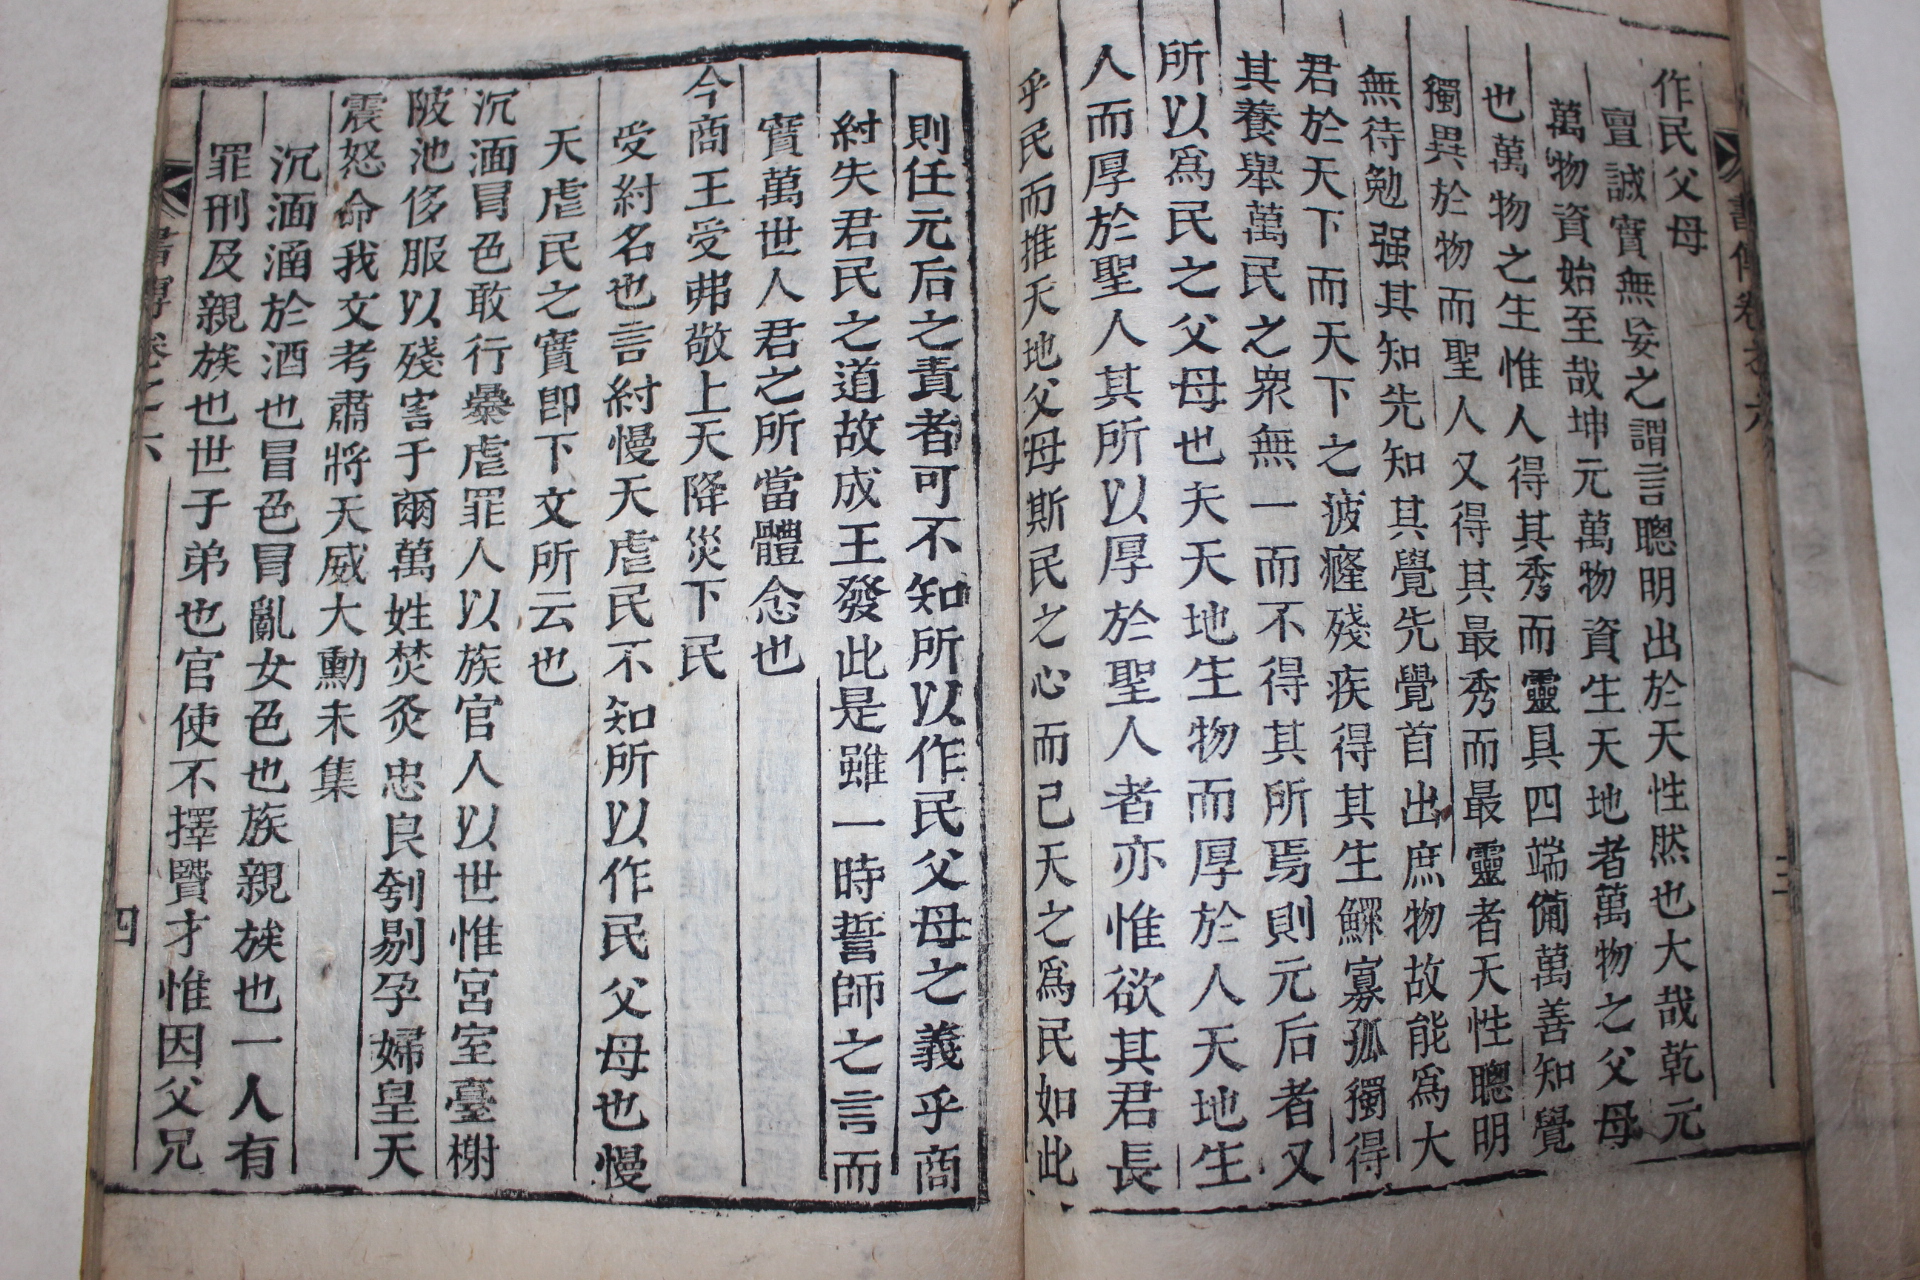 書傳卷之六
三
作民父母
亶誠實無妄之謂言聰明出於天性然也大哉乾元
萬物資始至哉坤元萬物資生天地者萬物之父母
也萬物之生惟人得其秀而靈具四端備萬善知覺
獨異於物而聖人又得其最秀而最靈者天性聰明
無待勉强其知先知其覺先覺首出庶物故能爲大
君於天下而天下之疲癃殘疾得其生鰥寡孤獨得
其養舉萬民之衆無一而不得其所焉則元后者又
所以爲民之父母也夫天地生物而厚於人天地生
人而厚於聖人其所以厚於聖人者亦惟欲其君長
乎民而推天地父母斯民之心而已天之爲民如此
則任元后之責者可不知所以作民父母之義乎商
紂失君民之道故成王發此是雖一時誓師之言而
實萬世人君之所當體念也
今商王受弗敬上天降災下民
受紂名也言紂慢天虐民不知所以作民父母也慢
天虐民之實即下文所云也
沉湎冒色敢行暴虐罪人以族官人以世惟宮室臺榭
陂池侈服以殘害于爾萬姓焚炙忠良刳剔孕婦皇天
震怒命我文考肅將天威大勳未集
沉湎湎於酒也冒色冒亂女色也族親族也一人有
罪刑及親族也世子弟也官使不擇賢才惟因父兄
書傳卷之六
四